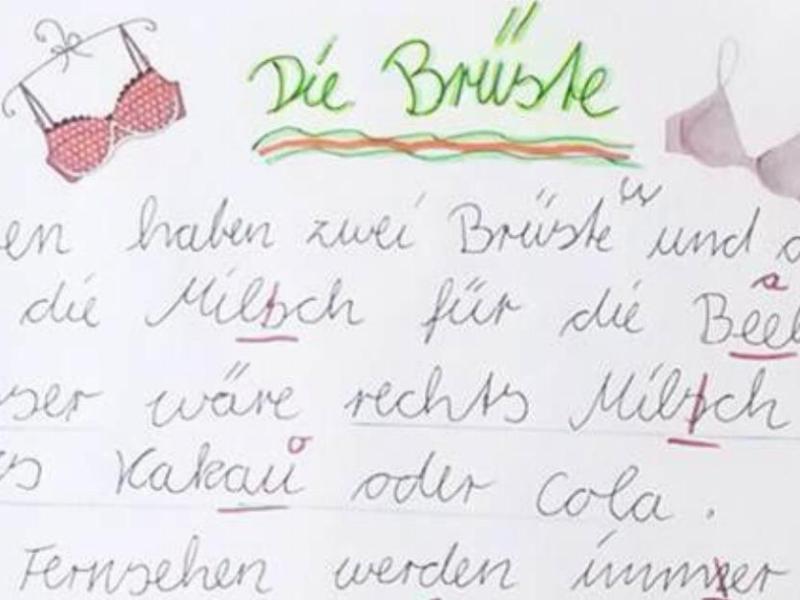 Die Brüste
en haben zwei Brüste und
die Miltsch für die Bee
ser wäre rechts Miltsch
s Kakau oder Cola.
Fernsehen werden immer